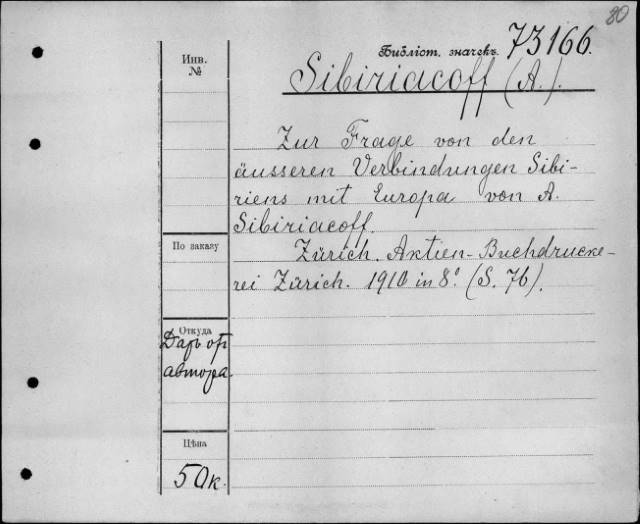 80
Библіот. значекъ 73166.
Инв.
№
Sibiriacoff (A.).
Zur Frage von den
äusseren Verbindungen Sibi-
riens mit Europa von A.
Sibiriacoff.
По заказу
Zürich. Aktien-Buchdrucke-
rei Zürich. 1910 in 8°. (S. 76).
Откуда
Даръ от
автора.
Цѣна
50к.